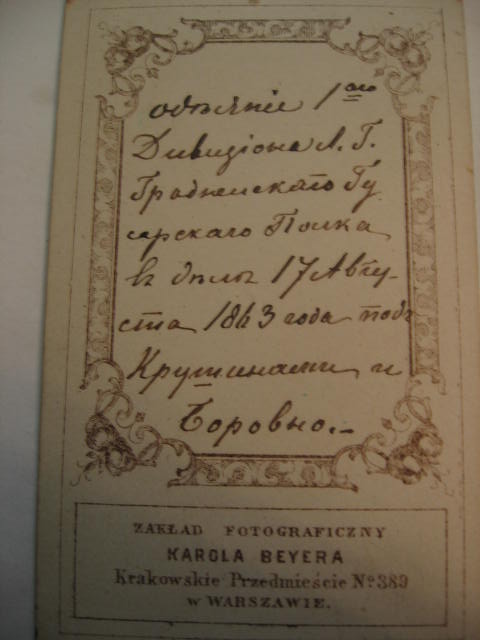 1го
Дивизiона Л. Г.
Гродненскаго Гу
сарскаго Полка
въ дѣлѣ 17 Авгу-
ста 1863 года подъ
Крушинами и
Боровно.-
ZAKŁAD FOTOGRAFICZNY
KAROLA BEYERA
Krakowskie Przedmieście No. 389
w WARSZAWIE.